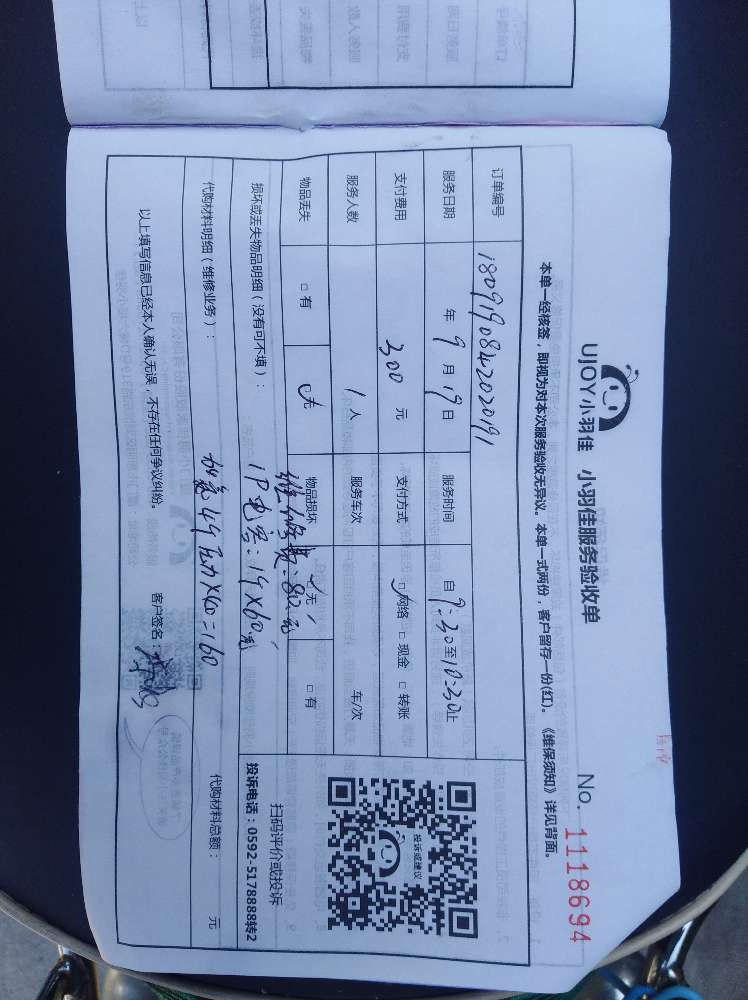 UJOY小羽佳 小羽佳服务验收单
No. 1118694
本单一经核签，即视为对本次服务验收无异议。本单一式两份，客户留存一份(红)。《维保须知》详见背面。
订单编号 1809190842020191
服务日期 年 9 月 19 日 服务时间 自 9:30 至 10:30 止
支付费用 300 元 支付方式 □网络 □现金 □转账
服务人数 1 人 服务车次 车/次
物品丢失 □有 无 物品损坏 无 □有
投诉或建议
扫码评价或投诉
投诉电话：0592-5178888转2
损坏或丢失物品明细（没有可不填）：
维修费：80元
1P电容：1个×60元
代购材料明细（维修业务）： 加氟4个压力×40=160
代购材料总额： 元
以上填写信息已经本人确认无误，不存在任何争议纠纷。 客户签名：